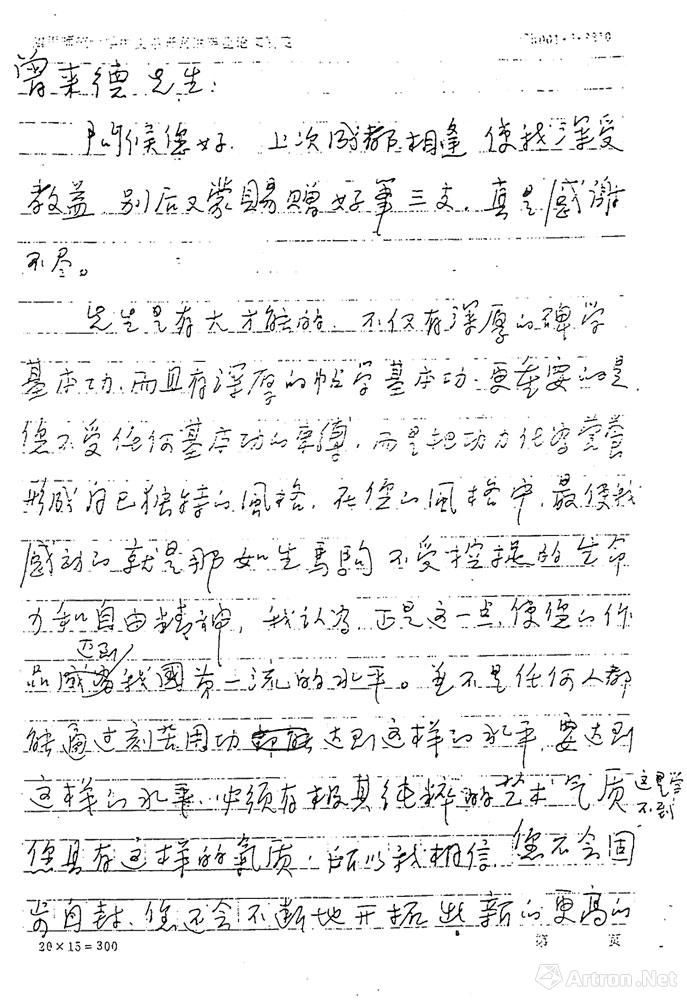 曾来德先生：
问候您好．上次成都相逢使我深受
教益，别后又蒙赐赠好笔三支，真是感谢
不尽。
先生是有大才能的，不仅有深厚的碑学
基本功，而且有深厚的帖学基本功．更重要的是，
您不受任何基本功的束缚，而是把功力化为营养
形成自己独特的风格．在您的风格中，最使我
感动的就是那如生马驹不受控捉的生命
力和自由精神，我认为，正是这一点，使您的作
达到
品成为我国第一流的水平。并不是任何人都
能通过刻苦用功达到这样的水平，要达到
这样的水平，必须有极其纯粹的艺术气质
这是学
不到
您具有这样的气质．所以我相信，您不会固
步自封，您还会不断地开拓出新的更高的
20×15=300
第 页
Artron.Net